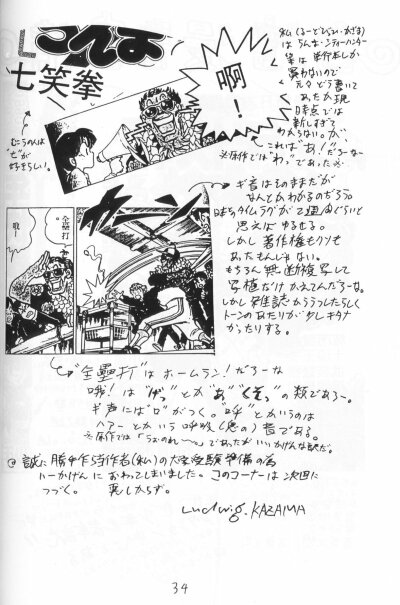 こんな
七笑拳
啊！
私(るーどびっひ・かざま)
はらんま・シティーハンター
等は単行本しか
買わないので
元々どう書いて
あったか現
時点では
新しすぎて
わからない。が、
これは"あ!"だろーな
※原作では"わっ"であった
むこうの人は
"七"が
好きらしい。
ギ音はそのままだが
なんとかわかるのだろう。
日本とタイムラグが2週間ぐらいと
思えばゆるせる。
しかし著作権もクソも
あったもんじゃない。
もちろん無断複写して
写植だけかえてんだろーな。
しかし雑誌からうつしたらしく
トーンのあたりが少しキタナ
かったりする。
全壘打
哦！
"全壘打"はホームラン！だろーな
哦！は"げっ"とか"あ""くそっ"の類であろー。
ギ声には"口"がつく。"呼"とかいうのは
ハァーとかいう呼吸(息の)音である。
※原作では「うおのれ〜〜」であったがいいかげんな訳だ。
誠に勝手乍ら作者(私)の大学受験準備の為
いーかげんにおわってしまいました。このコーナーは次回に
つづく。 悪しからず。
Ludwig. KAZAMA
34